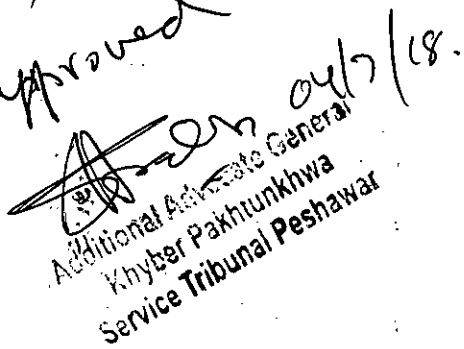 Approved
04/7/18.
Additional Advocate General
Khyber Pakhtunkhwa
Service Tribunal Peshawar